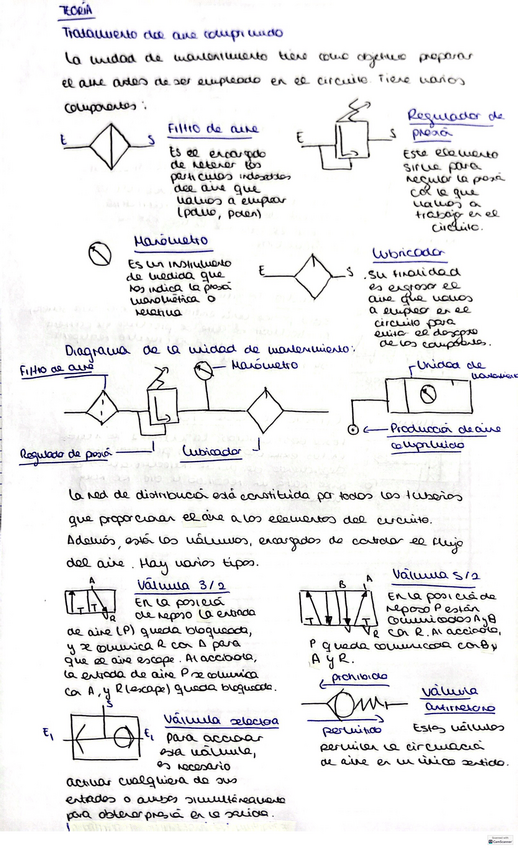 TEORÍA
Tratamiento del aire comprimido
La unidad de mantenimiento tiene como objetivo preparar
el aire antes de ser empleado en el circuito. Tiene varios
componentes:
E
S
Filtro de aire
Es el encargado
de retener las
partículas indeseables
del aire que
vamos a emplear
(polvo, polen)
E
S
Regulador de
presión
Este elemento
sirve para
regular la presión
con la que
vamos a
trabajar en el
circuito.
Manómetro
Es un instrumento
de medida que
nos indica la presión
manométrica o
relativa
E
S
Lubricador
Su finalidad
es engrasar el
aire que vamos
a emplear en el
circuito para
evitar el desgaste
de los componentes.
Diagrama de la unidad de mantenimiento:
Filtro de aire
Manómetro
Regulador de presión
Lubricador
Unidad de
Producción de aire
comprimido
La red de distribución está constituida por todas las tuberías
que proporcionan el aire a los elementos del circuito.
Además, están las válvulas, encargadas de controlar el flujo
del aire. Hay varios tipos.
A
T
T
R
Válvula 3/2
En la posición
de reposo la entrada
de aire (P) queda bloqueada,
y se comunica R con A para
que el aire escape. Al accionarla,
la entrada de aire P se comunica
con A, y R (escape) queda bloqueada.
B
A
T
T
R
Válvula 5/2
En la posición de
reposo P están
comunicados A y B
con R. Al accionarla,
P queda comunicada con B y
A y R.
S
E1
E1
Válvula selectora
para accionar
esta válvula,
es necesario
activar cualquiera de sus
entradas o ambas simultáneamente
para obtener presión en la salida.
prohibido
permitido
Válvula
antirretorno
Estas válvulas
permiten la circulación
de aire en un único sentido.
CamScanner